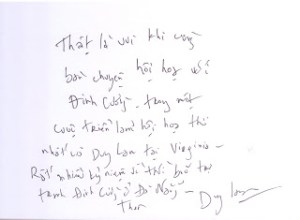 Thật là vui khi cùng
bàn chuyện hội họa với
Đinh Cường. trong một
cuộc triển lãm hội họa thứ
nhất có Duy Lam tại Virginia -
Rất nhiều kỷ niệm
tranh Đinh Cường ở Đà Nẵng -
Duy Lam